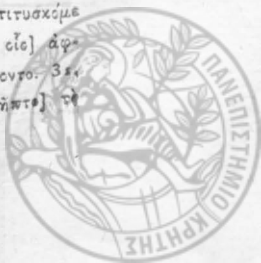 τιτυσκόμε
οἷς] ἀφ-
οντο. 3s.
ῆπτο] τὸ
ΠΑΝΕΠΙΣΤΗΜΙΟ ΚΡΗΤΗΣ